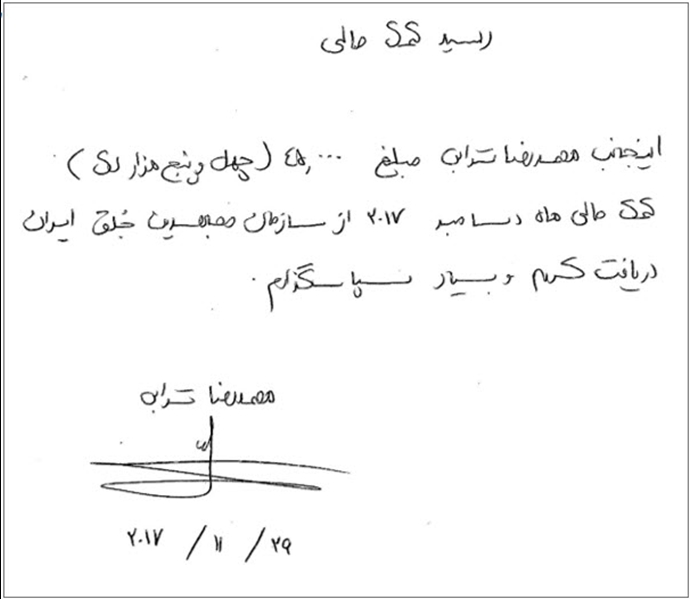 رسید کمک مالی
اینجانب محمدرضا ترابی مبلغ ۴۵,۰۰۰ (چهل و پنج هزار لک)
کمک مالی ماه دسامبر ۲۰۱۷ از سازمان مجاهدین خلق ایران
دریافت کردم و بسیار سپاسگذارم.
محمدرضا ترابی
۲۰۱۷ / ۱۱ / ۲۹